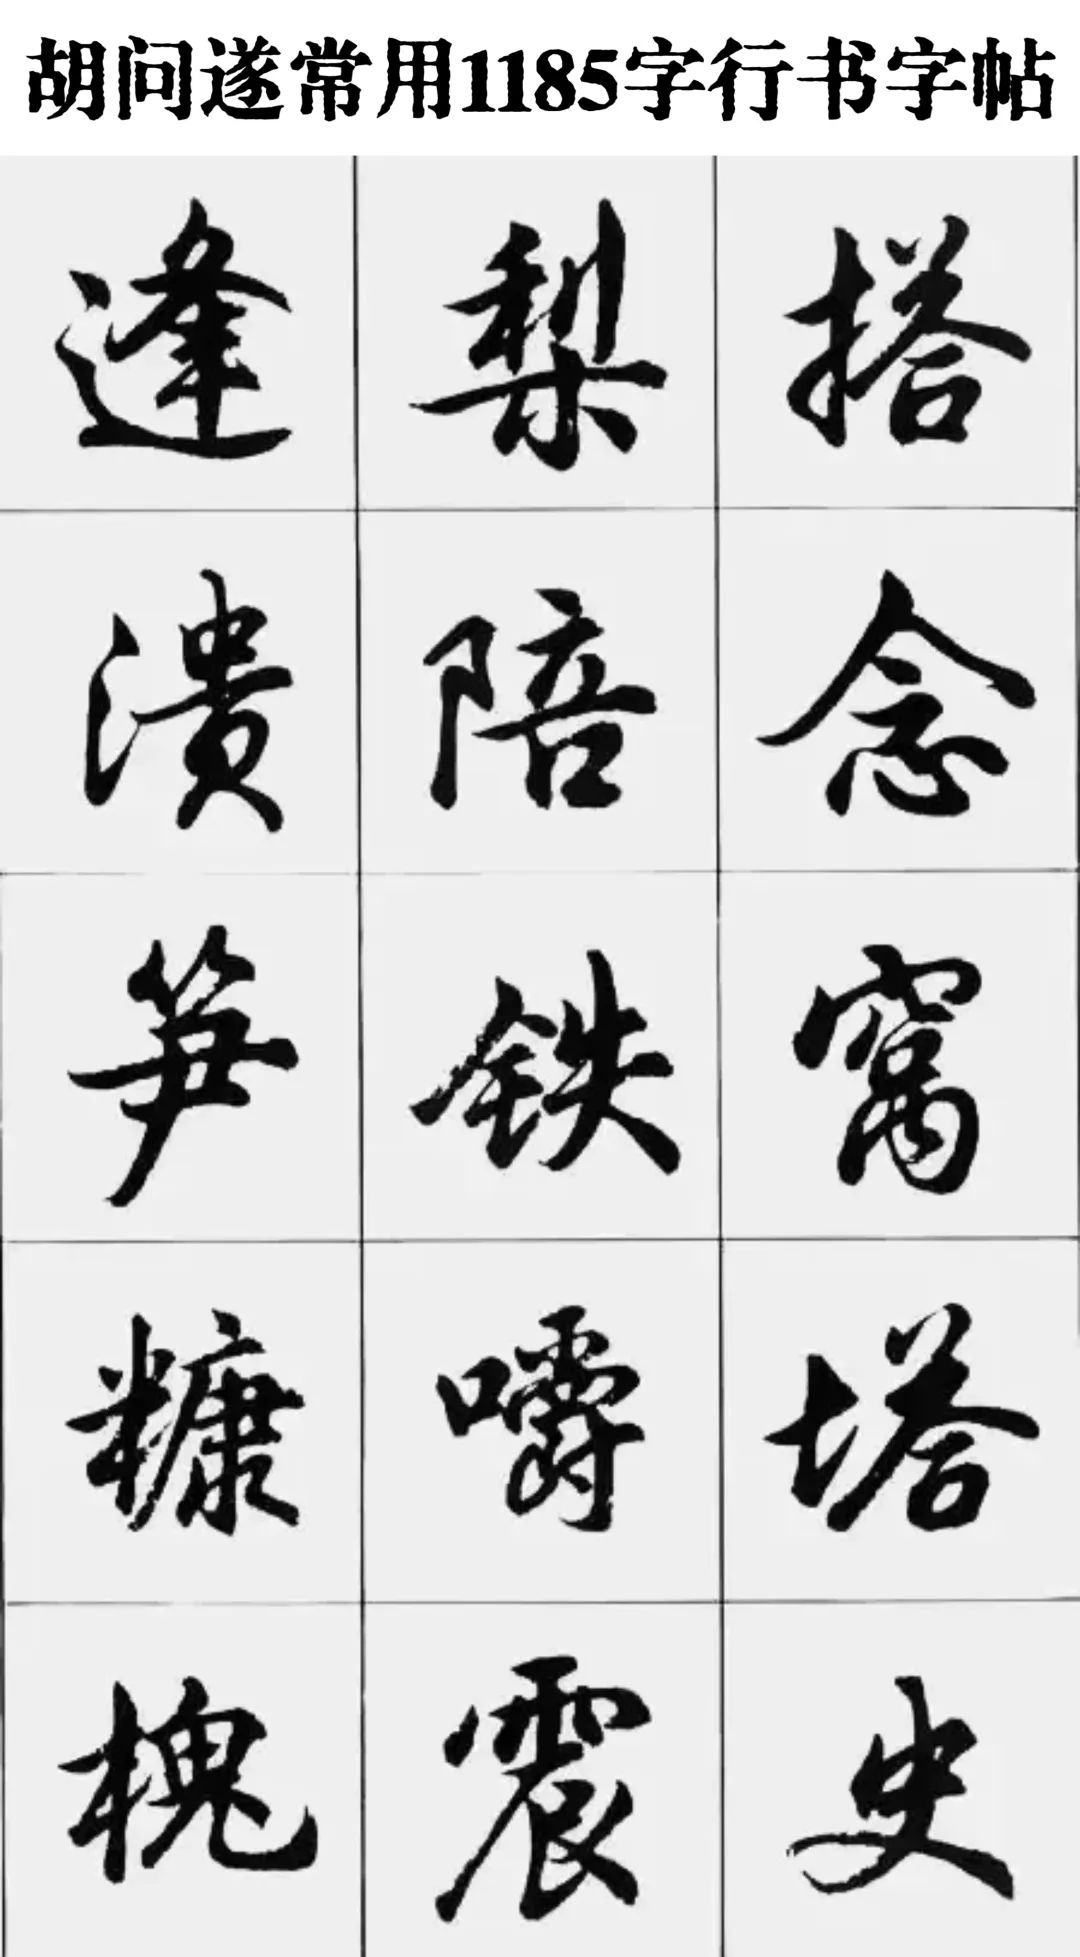 胡问遂常用1185字行书字帖
逢 梨 搭
溃 陪 念
笋 铁 窝
糠 嚼 塔
槐 震 史